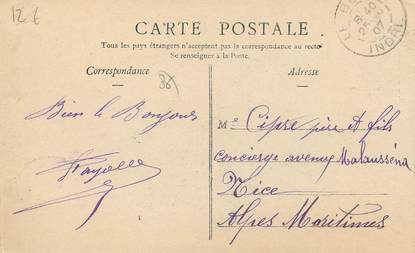 12 €
CARTE POSTALE
Tous les pays étrangers n'acceptent pas la correspondance au recto
Se renseigner à la Poste.
Correspondance
Adresse
38
Bien le Bonjour
Fayolle
Mr Cipre père et fils
concierge avenue Malausséna
Nice
Alpes Maritimes
07
INDRE